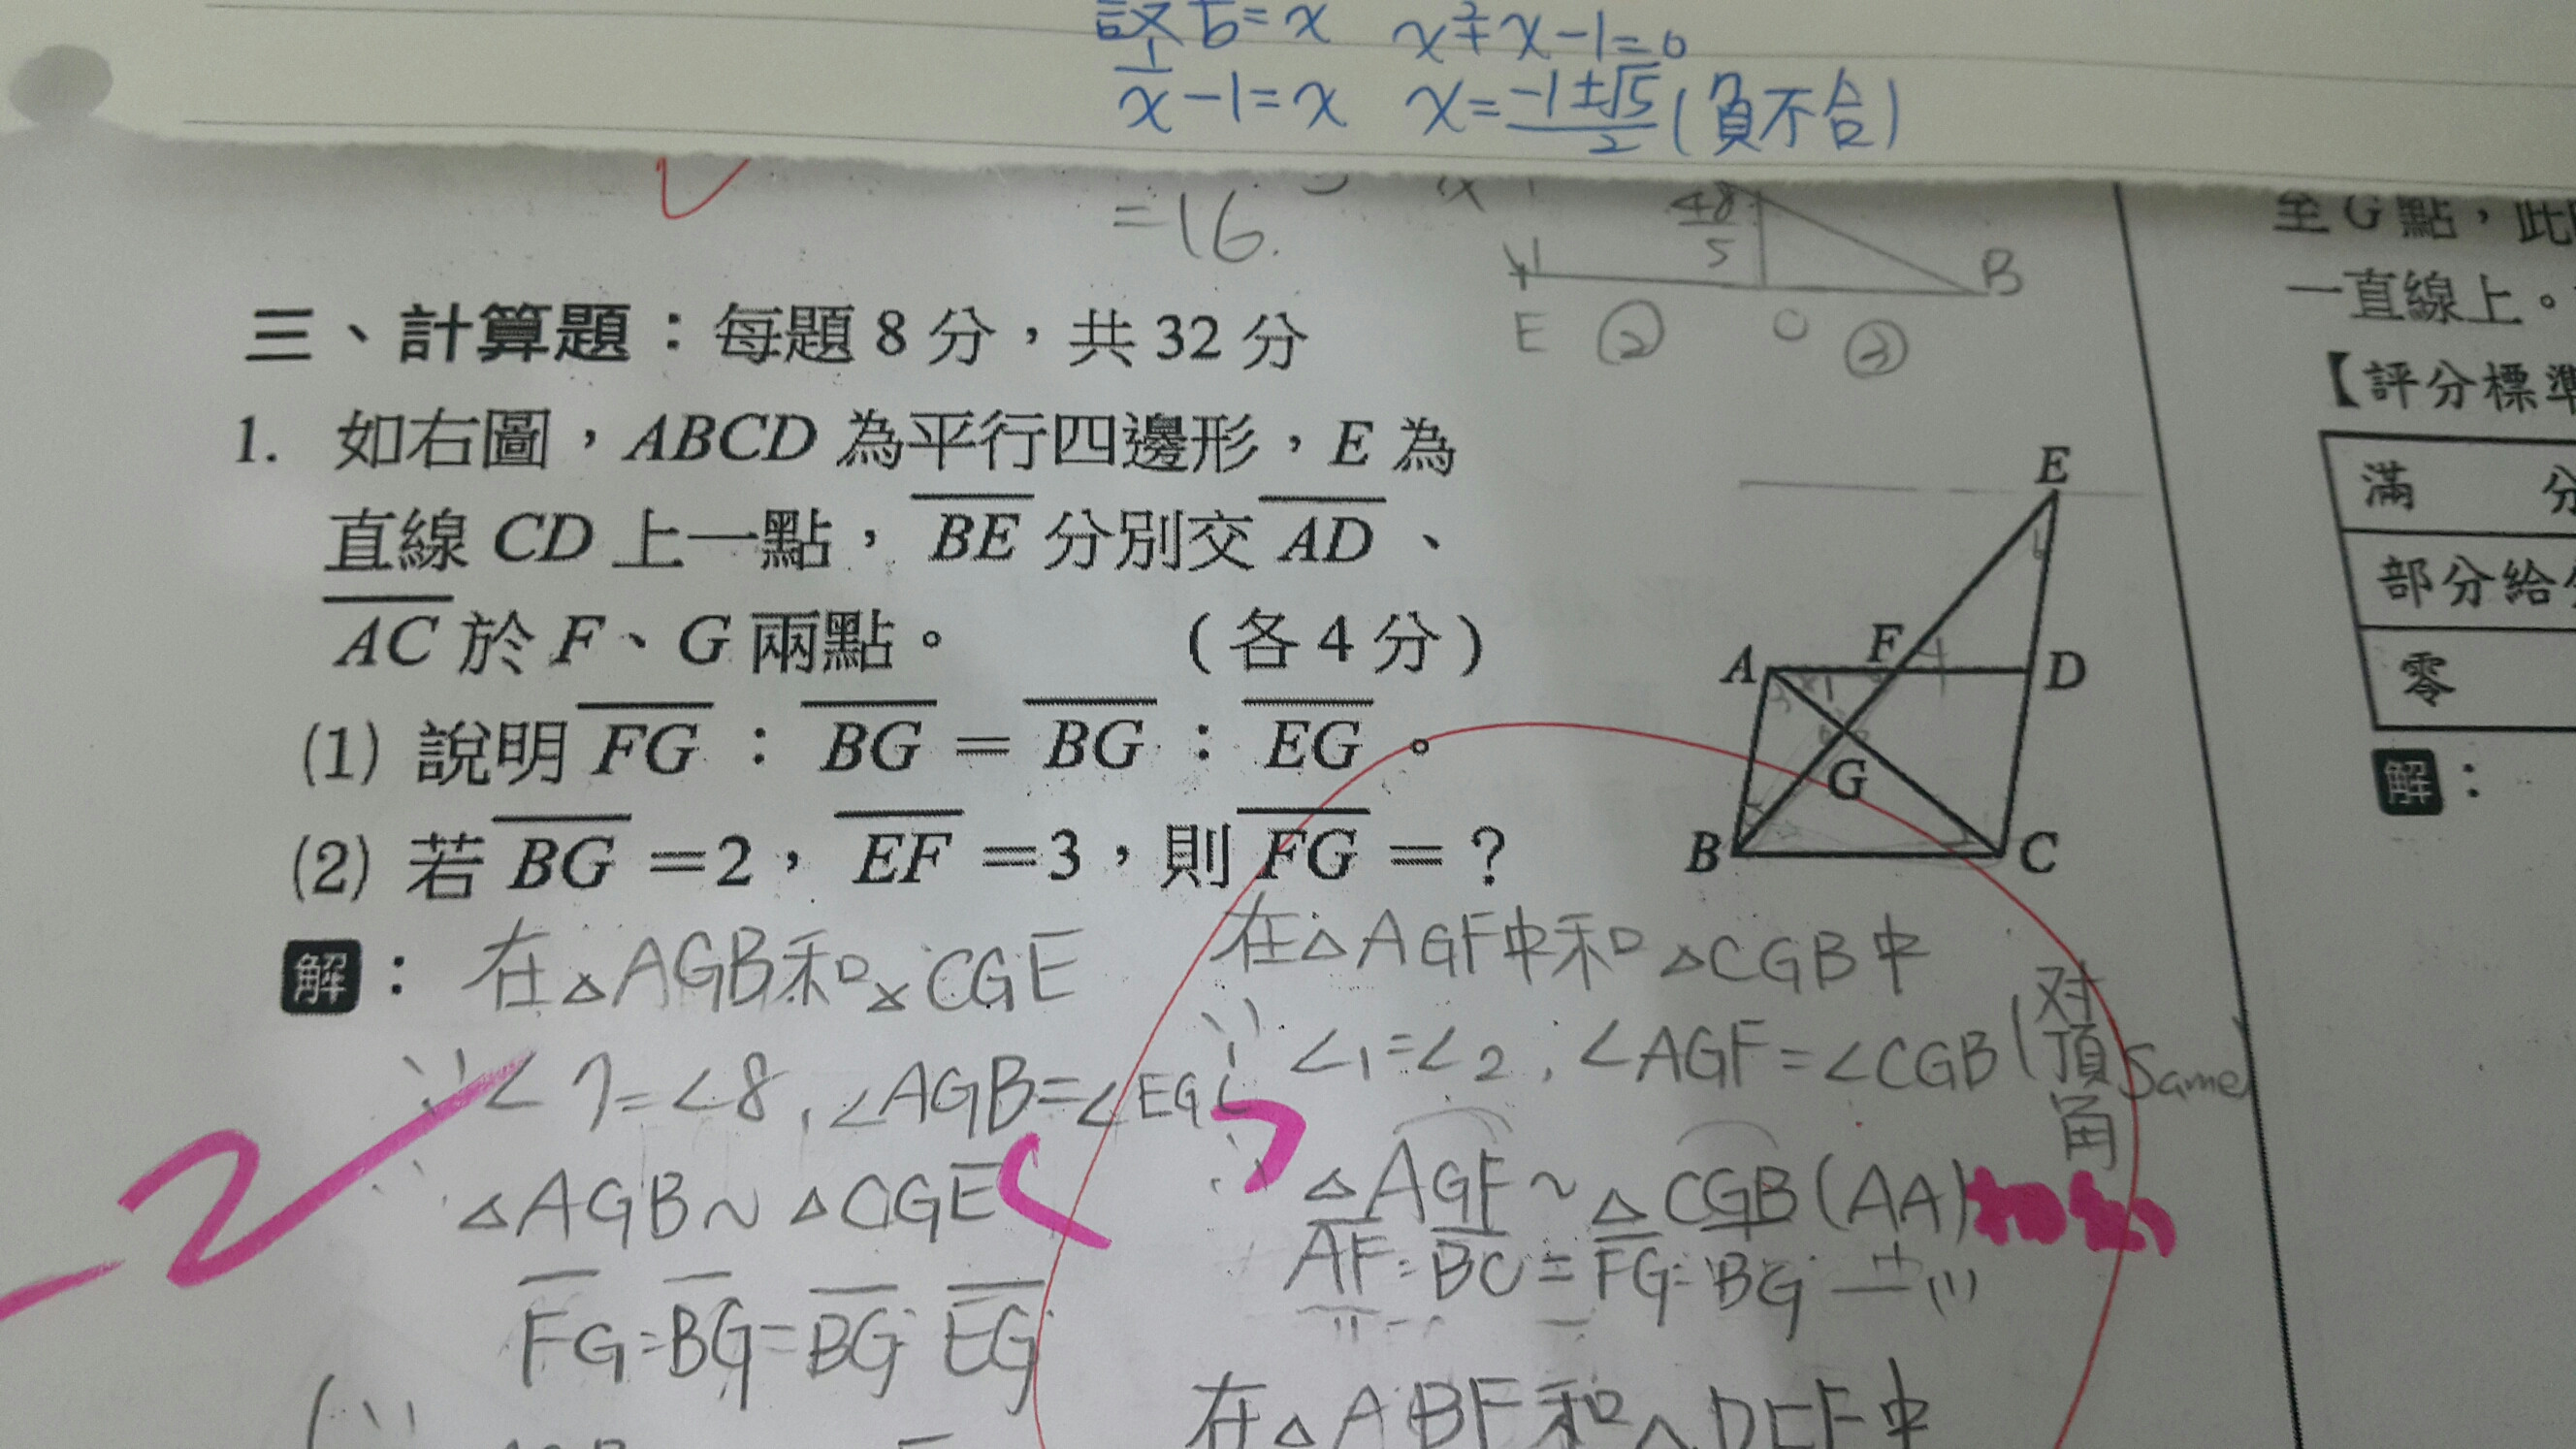 設 b = x  x²+x-1=0
1/x -1=x  x=(-1±√5)/2 (負不合)
=16.
48
5
B
E ② O ③
三、計算題：每題8分，共32分
1. 如右圖，ABCD 為平行四邊形，E 為
直線 CD 上一點，BE 分別交 AD、
AC 於 F、G 兩點。 (各4分)
(1) 說明 FG：BG＝BG：EG。
(2) 若 BG＝2，EF＝3，則 FG＝？
E
A F D
G
B C
解：在△AGB和△CGE
∵∠7=∠8,∠AGB=∠EGC
∴△AGB~△CGE
FG:BG=BG:EG
在△AGF中和△CGB中
∵∠1=∠2,∠AGF=∠CGB(对頂角 Same
∴△AGF~△CGB(AA)
AF:BC=FG:BG
在△ABF和△DEF中
至 G 點，此
一直線上。
【評分標準
滿 分
部分給分
零
解：